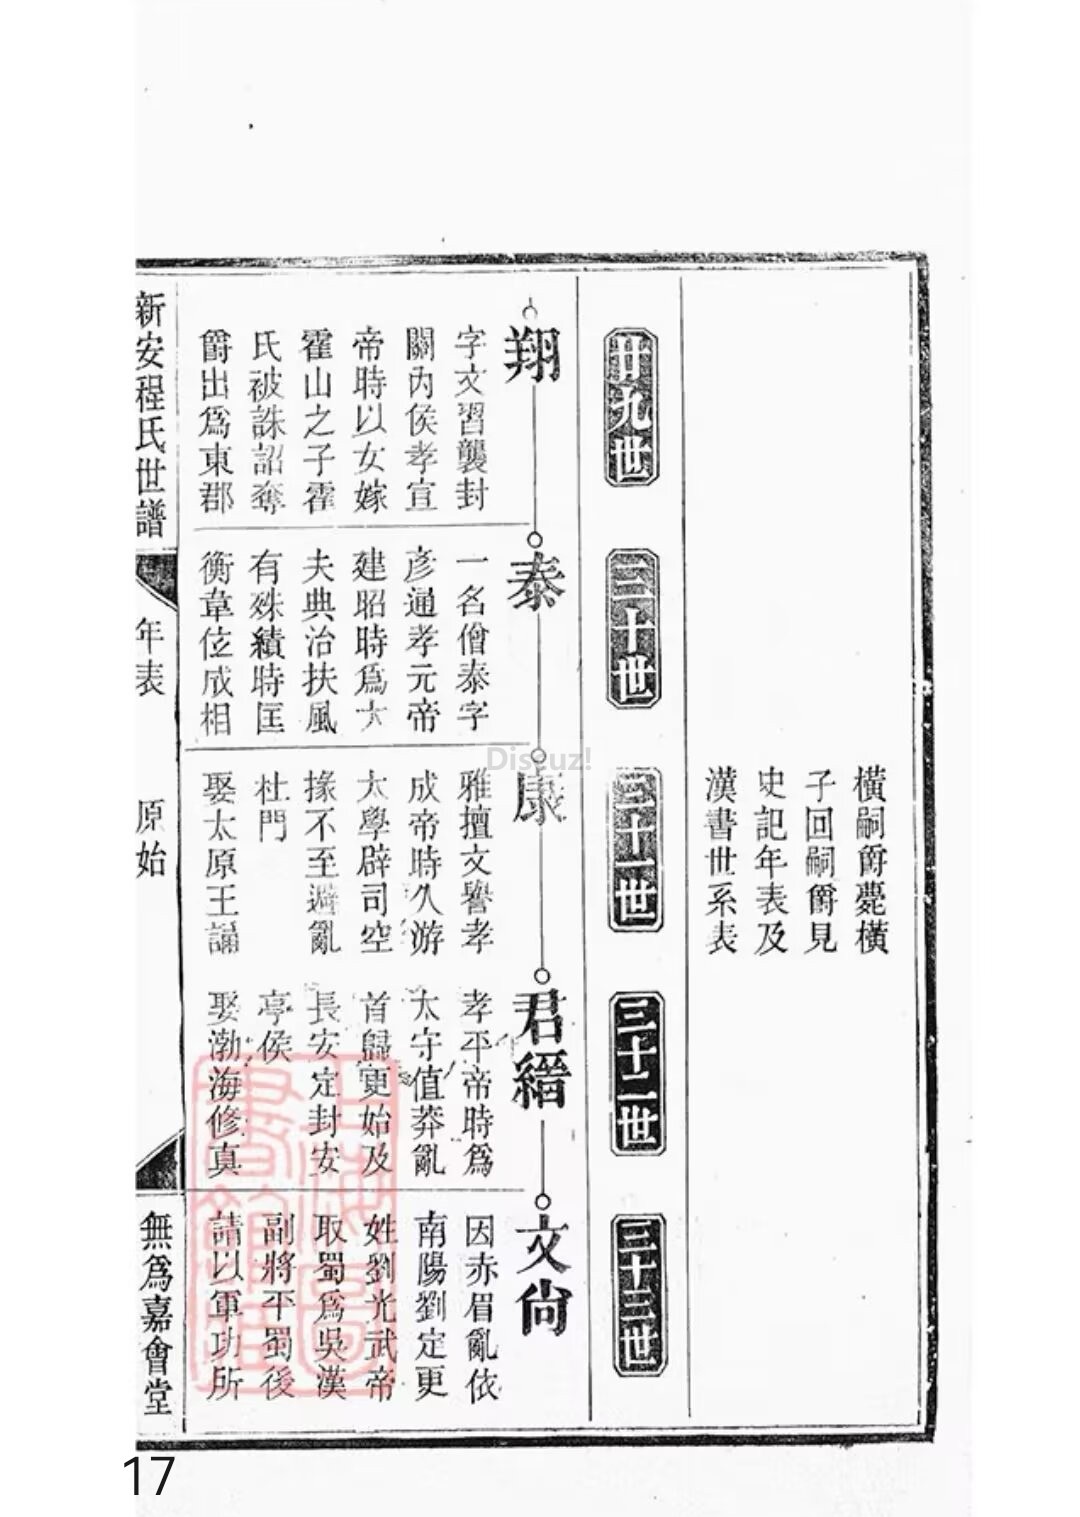 橫嗣爵薨橫
子回嗣爵見
史記年表及
漢書世系表
廿九世
三十世
三十一世
三十二世
三十三世
翔
字文習襲封
關內侯孝宣
帝時以女嫁
霍山之子霍
氏被誅詔奪
爵出爲東郡
泰
一名僧泰字
彥通孝元帝
建昭時爲大
夫典治扶風
有殊績時匡
衡韋位成相
康
雅擅文譽孝
成帝時久游
太學辟司空
掾不至避亂
杜門
娶太原王誦
君縉
孝平帝時爲
太守值莽亂
首歸更始及
長安定封安
亭侯
娶渤海修真
文尙
因赤眉亂依
南陽劉定更
姓劉光武帝
取蜀爲吳漢
副將平蜀後
請以軍功所
新安程氏世譜
年表
原始
無爲嘉會堂
Discuz!
17